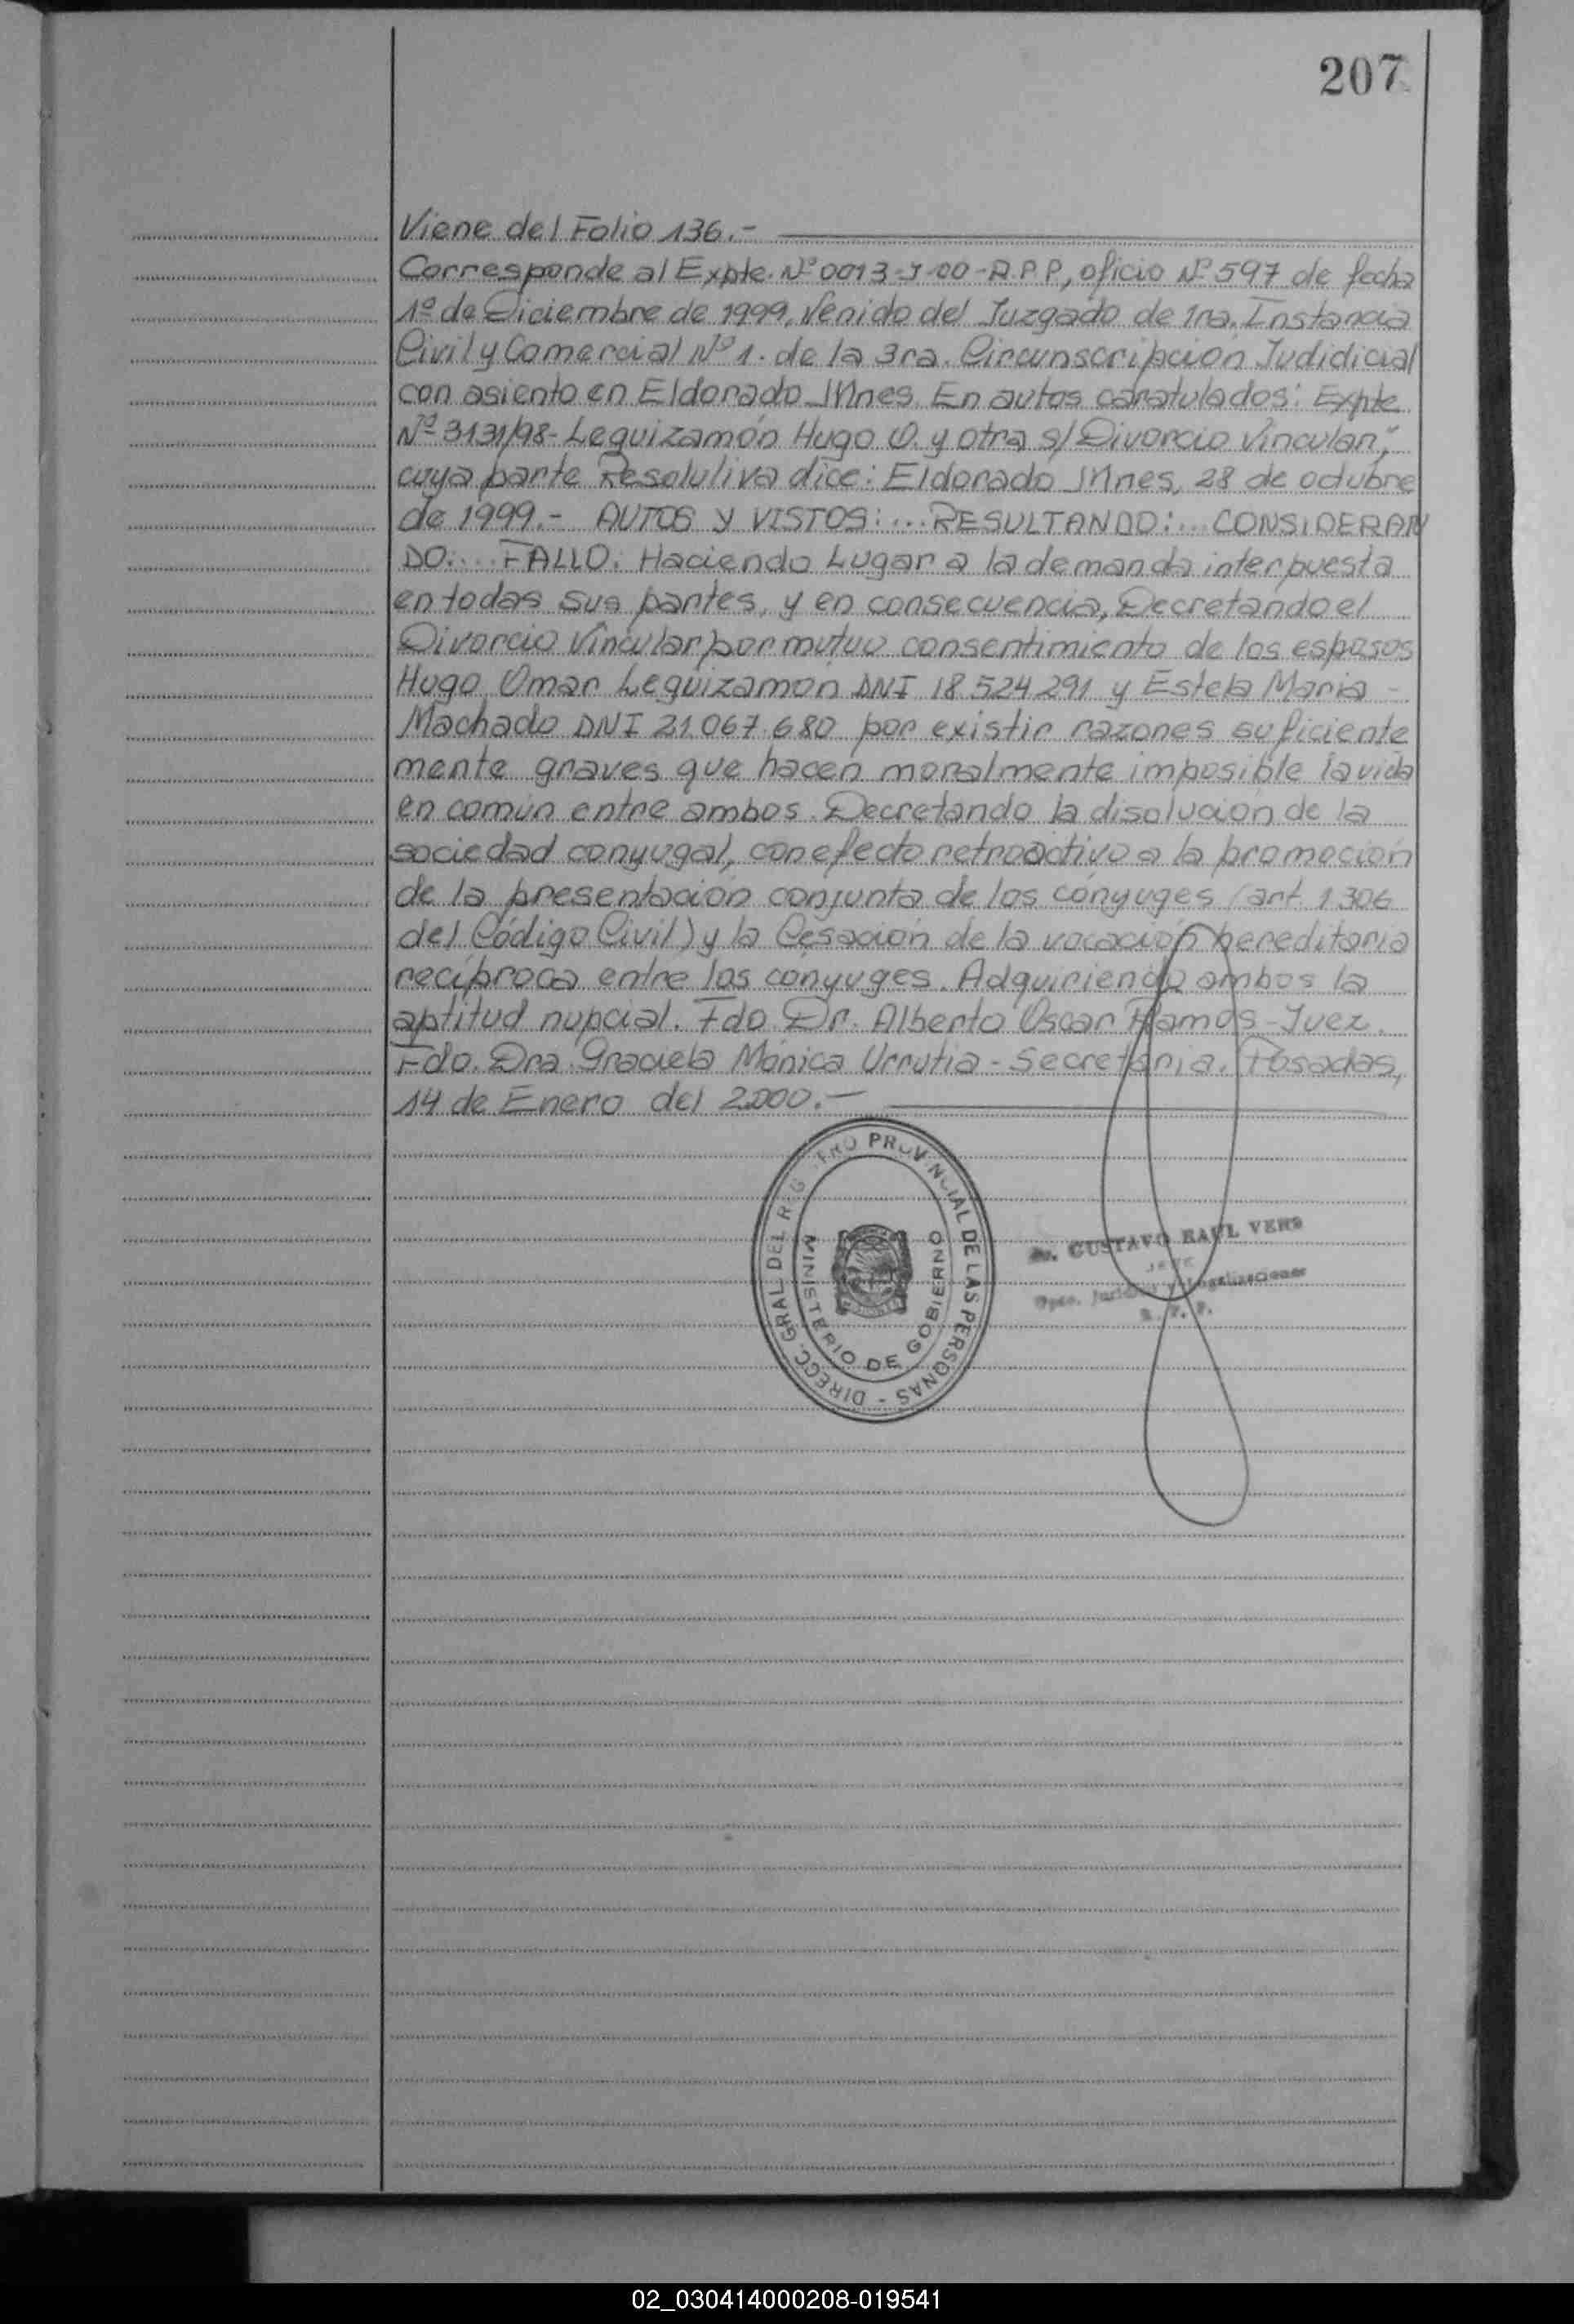 207
Viene del Folio 136.-
Corresponde al Expte. Nº 0013-J-00-R.P.P, oficio Nº 597 de fecha
1º de Diciembre de 1999. Venido del Juzgado de 1ra. Instancia
Civil y Comercial Nº 1. de la 3ra. Circunscripción Judidicial
con asiento en Eldorado Mnes. En autos caratulados: Expte
Nº 3131/98- Leguizamón Hugo O. y otra s/ Divorcio Vincular,"
cuya parte Resolutiva dice: Eldorado Mnes, 28 de octubre
de 1999.- AUTOS Y VISTOS:... RESULTANDO:... CONSIDERAN
DO:... FALLO: Haciendo Lugar a la demanda interpuesta
en todas sus partes, y en consecuencia, Decretando el
Divorcio Vincular por mutuo consentimiento de los esposos
Hugo Omar Leguizamon DNI 18.524.291 y Estela Maria -
Machado DNI 21.067.680 por existir razones suficiente
mente graves que hacen moralmente imposible la vida
en común entre ambos. Decretando la disolución de la
sociedad conyugal, con efecto retroactivo a la promoción
de la presentación conjunta de los cónyuges (art. 1.306
del Código Civil) y la Cesación de la vocación hereditaria
recíproca entre los cónyuges. Adquiriendo ambos la
aptitud nupcial. Fdo. Dr. Alberto Oscar Ramos - Juez.
Fdo. Dra. Graciela Mónica Urrutia - Secretaria. Posadas,
14 de Enero del 2.000.-
DIRECC. GRAL. DEL REGISTRO PROVINCIAL DE LAS PERSONAS -
MINISTERIO DE GOBIERNO
Dr. GUSTAVO RAUL VERO
JEFE
Dpto. Jurídico y Legalizaciones
R. P. P.
02_030414000208-019541